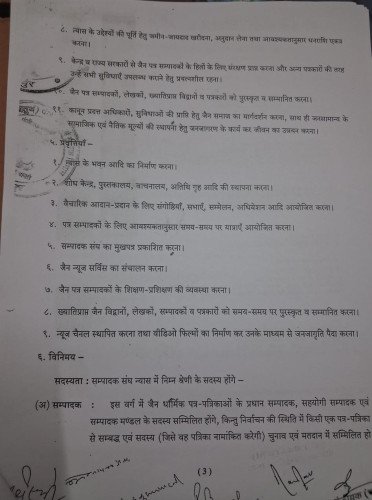 ८. न्यास के उद्देश्यों की पूर्ति हेतु जमीन-जायदाद खरीदना, अनुदान लेना तथा आवश्यकतानुसार धनराशि एकत्र
करना।
९. केन्द्र व राज्य सरकारों से जैन पत्र सम्पादकों के हितों के लिए संरक्षण प्राप्त करना और अन्य पत्रकारों की तरह
उन्हें सभी सुविधाएँ उपलब्ध कराने हेतु प्रयत्नशील रहना।
१०. जैन पत्र सम्पादकों, लेखकों, ख्यातिप्राप्त विद्वानों व पत्रकारों को पुरस्कृत व सम्मानित करना।
११. कानून प्रदत्त अधिकारों, सुविधाओं की प्राप्ति हेतु जैन समाज का मार्गदर्शन करना, साथ ही जनसामान्य के
सामाजिक एवं नैतिक मूल्यों की स्थापना हेतु जनजागरण के कार्य कर जीवन का उन्नयन करना।
५. प्रवृत्तियाँ –
१. न्यास के भवन आदि का निर्माण करना।
२. शोध केन्द्र, पुस्तकालय, वाचनालय, अतिथि गृह आदि की स्थापना करना।
३. वैचारिक आदान-प्रदान के लिए संगोष्ठियाँ, सभाएँ, सम्मेलन, अधिवेशन आदि आयोजित करना।
४. पत्र सम्पादकों के लिए आवश्यकतानुसार समय-समय पर यात्राएँ आयोजित करना।
५. सम्पादक संघ का मुखपत्र प्रकाशित करना।
६. जैन न्यूज सर्विस का संचालन करना।
७. जैन पत्र सम्पादकों के शिक्षण-प्रशिक्षण की व्यवस्था करना।
८. ख्यातिप्राप्त जैन विद्वानों, लेखकों, सम्पादकों व पत्रकारों को समय-समय पर पुरस्कृत व सम्मानित करना।
९. न्यूज चैनल स्थापित करना तथा वीडियो फिल्मों का निर्माण कर उनके माध्यम से जनजागृति पैदा करना।
६. विनिमय –
सदस्यता : सम्पादक संघ न्यास में निम्न श्रेणी के सदस्य होंगे –
(अ) सम्पादक : इस वर्ग में जैन धार्मिक पत्र-पत्रिकाओं के प्रधान सम्पादक, सहयोगी सम्पादक एवं
सम्पादक मण्डल के सदस्य सम्मिलित होंगे, किन्तु निर्वाचन की स्थिति में किसी एक पत्र-पत्रिका
से सम्बद्ध एवं सदस्य (जिसे वह पत्रिका नामांकित करेगी) चुनाव एवं मतदान में सम्मिलित हो
(3)